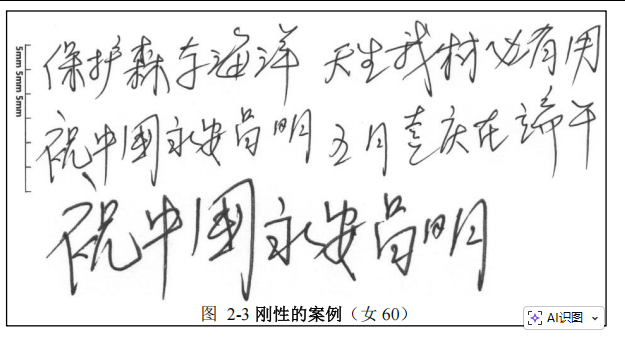 5mm 5mm 5mm
保护森海洋 天生我材必有用
祝中国永安昌明 五月喜庆在端午
祝中国永安昌明
图 2-3 刚性的案例（女 60）
AI识图